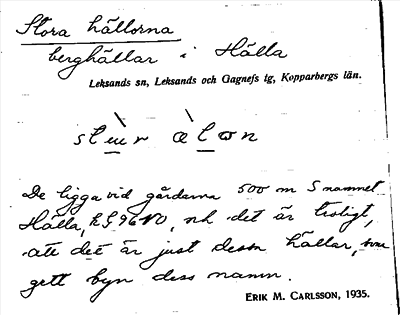 Stora hällorna
berghällar i Hälla
Leksands sn, Leksands och Gagnefs tg, Kopparbergs län.
De ligga vid gårdarna 500 m S namnet
Hälla, RG96V0, och det är troligt,
att det är just dessa hällar, som
gett byn dess namn.
ERIK M. CARLSSON, 1935.